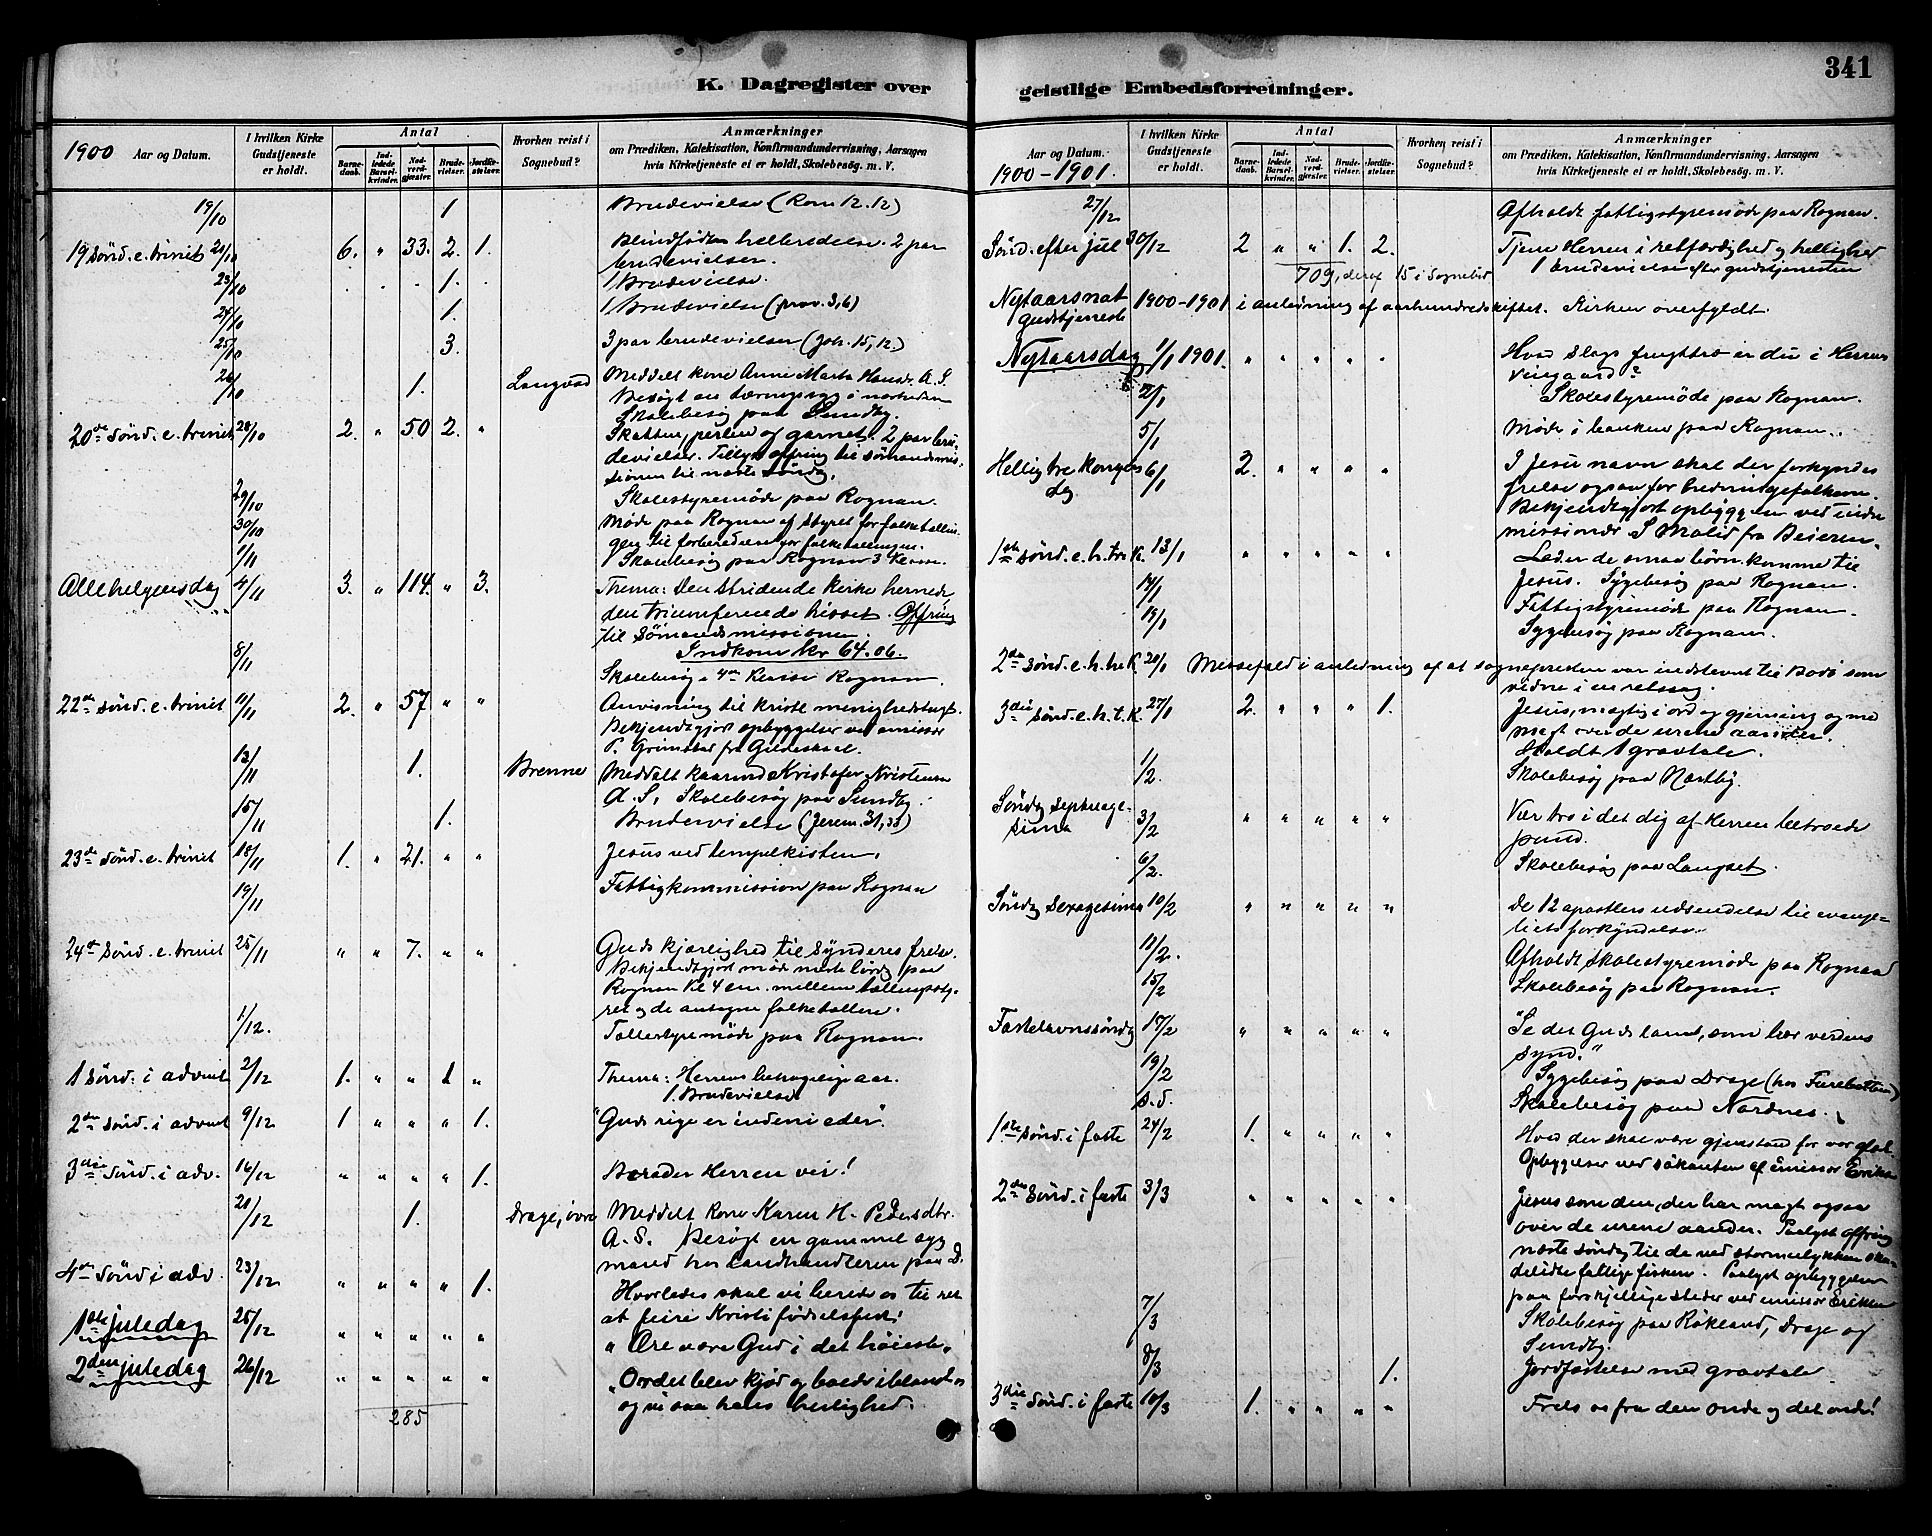 341
K. Dagregister over
1900
Aar og Datum.
I hvilken Kirke
Gudstjeneste
er holdt.
Antal
Barne-
daab.
Ind-
ledede
Barsel-
kvinder.
Nad-
verd-
gjæster.
Brude-
vielser.
Jordfæ-
stelser.
Hvorhen reist i
Sognebud?
Anmærkninger
om Prædiken, Katekisation, Konfirmandundervisning, Aarsagen
hvis Kirketjeneste ei er holdt, Skolebesög. m. V.
19/10 1 Brudevielse (Rom 12.12)
19 Sönd. e. trinit 21/10 6. " 33. 2. 1. Blindfödtes helbredelse. 2 par
brudevielser.
23/10 1. 1 Brudevielse.
24/10 1. 1 Brudevielse (prov. 3,6)
25/10 3. 3 par brudevielser (Joh. 15,12.)
26/10 1. Langvad Meddelt kone Anne Marta Hansdr. A. S.
Besögt en tæringssyg i nærheden
Skolebesög paa Sundby.
20de Sönd. e. trinit 28/10 2. " 50 2. " Skatten, perlen og garnet. 2 par bru-
devielser. Tillyst ofring til sömandsmis-
sionen til næste söndag.
29/10 Skolestyremöde paa Rognan.
30/10 Möde paa Rognan af styret for folketællin-
gen til forberedelse for folketællingen.
1/11 Skolebesög paa Rognan 3 Klasse.
Allehelgensdag 4/11 3. " 114. " 3. Thema: Den stridende kirke hernede,
den triumferende hisset. Offring
til Sömandsmissionen.
Indkom kr 64.06.
8/11 Skolebesög 4de Klasse Rognan.
22de sönd. e. trinit 11/11 2. " 57. " " Anvisning til kristl. menighedstugt.
Bekjendtgjort opbyggelser ved emissær
P. Grimstad fra Gildeskaal.
13/11 1. Brenne Meddelt kaarmd Kristofer Kristensen
A. S. Skolebesög paa Sundby.
15/11 1. Brudevielse (Jerem. 31,33)
23de sönd. e. trinit 18/11 1. " 21. " " Jesus ved tempelkisten.
19/11 Fattigkommission paa Rognan
24de Sönd. e. trinit 25/11 " " 7. " " Guds kjærlighed til synderes frelse.
Bekjendtgjort möde næste lördag paa
Rognan kl 4 em. mellem tællingssty-
ret og de antagne folketællere.
1/12. Tællestyremöde paa Rognan.
1 Sönd. i advent 2/12 1. " " 1 " Thema: Herrens behagelige aar.
1. Brudevielse
2den sönd. i advent 9/12 1 " " " 1. "Guds rige er indeni eder".
3die sönd. i adv. 16/12 " " " " 1. Bereder Herrens vei!
21/12 1. Drage, övre Meddelt kone Karen H. Pedersdtr.
A. S. Besögt en gammel syg
mand hos landhandleren paa D.
4de Sönd. i adv. 23/12 " " " " 1. Hvorledes skal vi berede os til ret
at feire Kristi födselsfest!
1ste juledag 25/12 " " " " " "Ære være Gud i det höieste"
2den juledag 26/12 " " " " " "Ordet blev kjöd og boede iblandt os
og vi saa hans herlighed.
285
geistlige Embedsforretninger.
Aar og Datum.
1900-1901.
I hvilken Kirke
Gudstjeneste
er holdt.
Antal
Barne-
daab.
Ind-
ledede
Barsel-
kvinder.
Nad-
verd-
gjæster.
Brude-
vielser.
Jordfæ-
stelser.
Hvorhen reist i
Sognebud?
Anmærkninger
om Prædiken, Katekisation, Konfirmandundervisning, Aarsagen
hvis Kirketjeneste ei er holdt, Skolebesög. m. V.
27/12 Afholdt fattigstyremöde paa Rognan.
Sönd. efter jul 30/12 2 " " 1. 2. Tjene Herren i retfærdighed og hellighed
709, deraf 15 i sognebud 1 Brudevielse efter gudstjenesten
Nytaarsnat 1900-1901 i anledning af aarhundredskiftet. Kirken overfyldt.
gudstjeneste
Nytaarsdag 1/1 1901. " " " " " Hvad slags frugttræ er du i Herrens
vingaard?
2/1 Skolestyremöde paa Rognan.
5/1 Möde i banken paa Rognan.
Hellig tre kongers 6/1 2. " " " " I Jesu navn skal der forkyndes
dag frelse ogsaa for hedningefolkene.
Bekjendtgjort opbyggelser ved indre
missionær S. Molid fra Beieren.
1ste sönd. e. h. tre K. 13/1 " " " " " Lader de smaa börn komme til
Jesus. Sygebesög paa Rognan.
14/1 Fattigstyremöde paa Rognan.
19/1 Sygebesög paa Rognan.
2den sönd. e. h. tre K. 20/1 Messefald i anledning af at sognepresten var indstevnt til Bodö som
vidne i en retssag.
3die sönd. e. h. t. K. 27/1 2. " " " 1. Jesus, mægtig i ord og gjerning og med
magt over de urene aander.
Holdt 1 gravtale.
1/2. Skolebesög paa Næstby.
Söndag septuage- 3/2 " " " " " Vær tro i det dig af Herren betroede
sima pund.
6/2. Skolebesög paa Langset.
Söndag sexagesima 10/2 " " " " " De 12 apostlers udsendelse til evange-
liets forkyndelse.
11/2. Afholdt skolestyremöde paa Rognan
15/2 Skolebesög paa Rognan.
Fastelavnssöndag 17/2 " " " " " "Se det Guds lam, som bær verdens
synd."
19/2 Sygebesög paa Drage (hos Furebotten)
s. d. Skolebesög paa Nordnes.
1ste sönd. i faste 24/2 1. " " " " Hvad der skal være gjenstand for vor afsk.
Opbyggelser ved sökanten af emissær Eriksen
2den sönd. i faste 3/3 " " " " " Jesus som den, der har magt ogsaa
over de urene aander. Paalyst ofring
næste söndag til de ved stormulykken ska-
delidte fattige fiskere. Paalyst opbyggelser
paa forskjellige steder ved emissær Eriksen
7/3 Skolebesög paa Rökland, Drage og
Sundby.
8/3 1. Jordfæstelse med gravtale.
3die sönd. i faste 10/3 1. " " " " Frels os fra den onde og det onde!